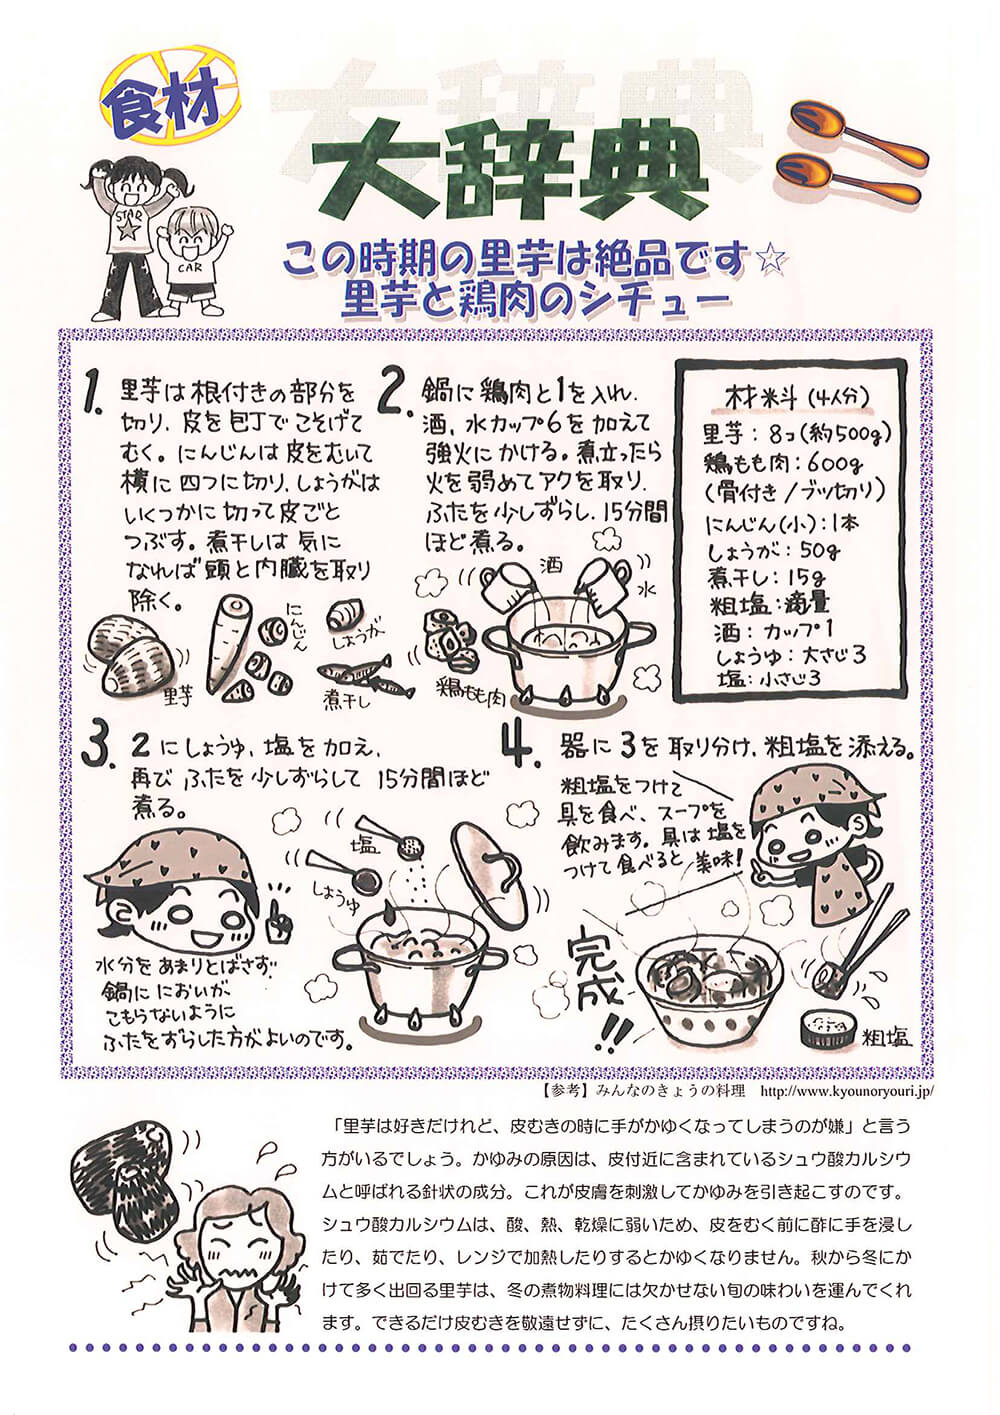 食材
大辞典
この時期の里芋は絶品です☆
里芋と鶏肉のシチュー
STAR
CAR
1. 里芋は根付きの部分を
切り、皮を包丁でこそげて
むく。にんじんは皮をむいて
横に四つに切り、しょうがは
いくつかに切って皮ごと
つぶす。煮干しは気に
なれば頭と内臓を取り
除く。
里芋
にんじん
しょうが
煮干し
2. 鍋に鶏肉と1を入れ、
酒、水カップ6を加えて
強火にかける。煮立ったら
火を弱めてアクを取り、
ふたを少しずらし、15分間
ほど煮る。
酒
水
鶏もも肉
材料(4人分)
里芋:8コ(約500g)
鶏もも肉:600g
(骨付き/ブツ切り)
にんじん(小):1本
しょうが:50g
煮干し:15g
粗塩:適量
酒:カップ1
しょうゆ:大さじ3
塩:小さじ3
3. 2にしょうゆ、塩を加え、
再びふたを少しずらして15分間ほど
煮る。
塩
しょうゆ
水分をあまりとばさず、
鍋ににおいが
こもらないように
ふたをずらした方がよいのです。
4. 器に3を取り分け、粗塩を添える。
粗塩をつけて
具を食べ、スープを
飲みます。具は塩を
つけて食べると美味!
S
完成!!
粗塩
【参考】みんなのきょうの料理 http://www.kyounoryouri.jp/
「里芋は好きだけれど、皮むきの時に手がかゆくなってしまうのが嫌」と言う
方がいるでしょう。かゆみの原因は、皮付近に含まれているシュウ酸カルシウ
ムと呼ばれる針状の成分。これが皮膚を刺激してかゆみを引き起こすのです。
シュウ酸カルシウムは、酸、熱、乾燥に弱いため、皮をむく前に酢に手を浸し
たり、茹でたり、レンジで加熱したりするとかゆくなりません。秋から冬にか
けて多く出回る里芋は、冬の煮物料理には欠かせない旬の味わいを運んでくれ
ます。できるだけ皮むきを敬遠せずに、たくさん摂りたいものですね。